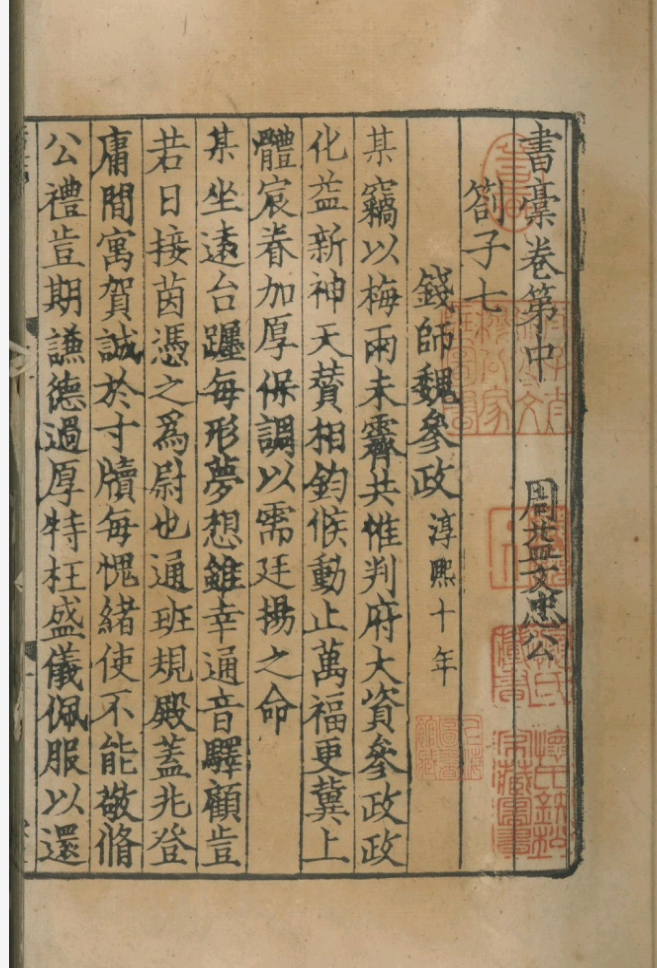 書稾卷第中 周益文忠公
劄子七
錢師魏參政 淳熙十年
某竊以梅雨未霽共惟判府大資參政政
化益新神天賛相鈞候動止萬福更冀上
體宸眷加厚保調以需廷揚之命
某坐遠台躔每形夢想雖幸通音驛顧豈
若日接茵憑之爲尉也通班規殿蓋兆登
庸間寓賀誠於寸牘每愧緒使不能敬脩
公禮豈期謙德過厚特枉盛儀佩服以還